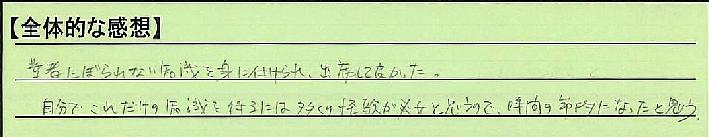 【全体的な感想】
業者にぼられない知識を身に付けられ、出席して良かった。
自分でこれだけの知識を得るには多くの経験が必要と思うので、時間の節約になったと思う。